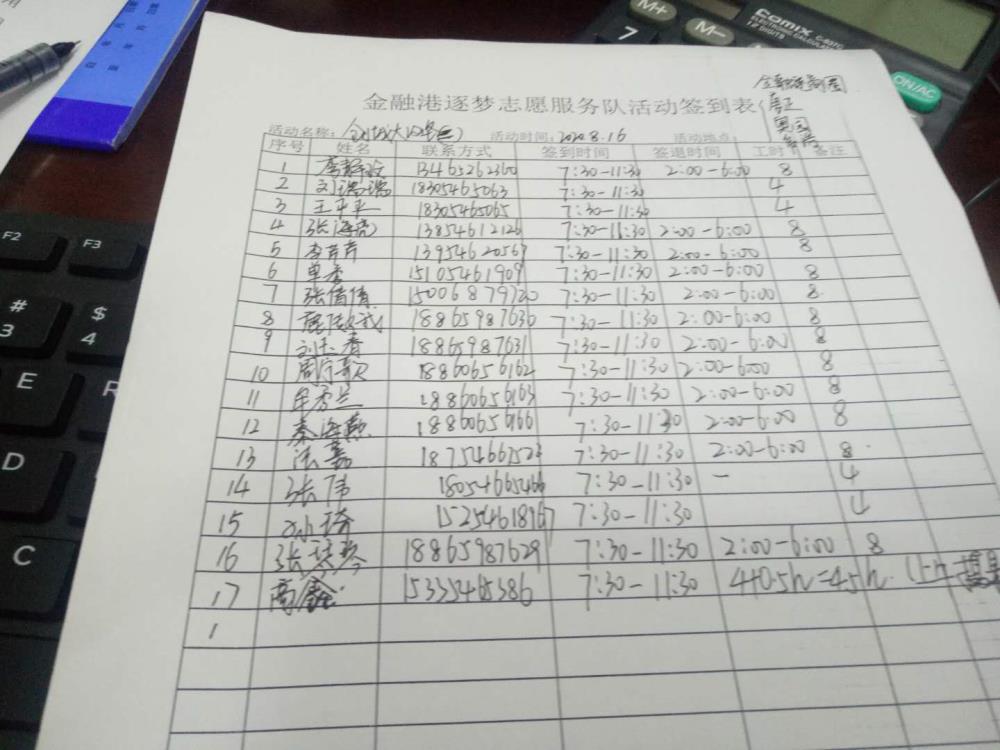 M+
M-
7
Comix
ELECTRONIC CALCULATOR
12 DIGITS
ON/AC
金融港逐梦志愿服务队活动签到表
活动名称： 活动时间：2020.8.16 活动地点：
序号 姓名 联系方式 签到时间 签退时间 工时 备注
1 13465262360 7:30-11:30 2:00-6:00 8
2 刘瑞瑞 18305465063 7:30-11:30 4
3 王平平 18305465065 7:30-11:30 4
4 张海亮 13854612126 7:30-11:30 2:00-6:00 8
5 李青青 13954620567 7:30-11:30 2:00-6:00 8
6 单秀 15105461909 7:30-11:30 2:00-6:00 8
7 张倩倩 15006879720 7:30-11:30 2:00-6:00 8
8 18865987636 7:30-11:30 2:00-6:00 8
9 刘玉香 18865987631 7:30-11:30 2:00-6:00 8
10 18860656162 7:30-11:30 2:00-6:00 8
11 牟秀兰 18860656163 7:30-11:30 2:00-6:00 8
12 秦海燕 18860656166 7:30-11:30 2:00-6:00 8
13 18754667523 7:30-11:30 2:00-6:00 8
14 张伟 18054665466 7:30-11:30 — 4
15 15254618967 7:30-11:30 4
16 18865987629 7:30-11:30 2:00-6:00 8
17 高鑫 15335465386 7:30-11:30 4+0.5h=4.5h
1
F2
F3
#
3
$
4
E
R
D
C